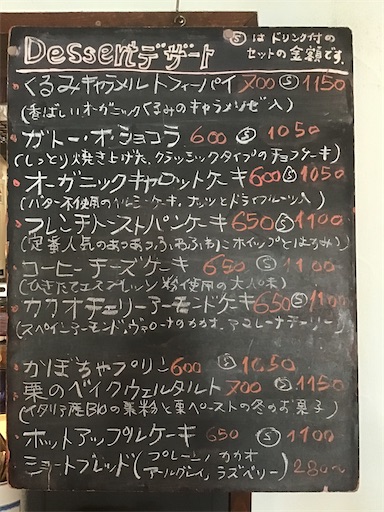 Dessert デザート
Ⓢは ドリンク付の
セットの金額です。
くるみキャラメルトフィーパイ 700 Ⓢ 1150
(香ばしいオーガニックくるみのキャラメリゼ入)
ガトー・オ・ショコラ 600 Ⓢ 1050
(しっとり焼き上げた、クラッシックタイプのチョコケーキ)
オーガニックキャロットケーキ 600 Ⓢ 1050
(バター不使用のヘルシーケーキ、ナッツとドライフルーツ入)
フレンチトーストパンケーキ 650 Ⓢ 1100
(定番人気のあつあつふわふわにホイップとはちみつ)
コーヒーチーズケーキ 650 Ⓢ 1100
(ひきたてエスプレッソ粉使用の大人味)
カカオチェリーアーモンドケーキ 650 Ⓢ 1100
(スペインアーモンド、ヴァローナのカカオ、アマレーナチェリー)
かぼちゃプリン 600 Ⓢ 1050
栗のベイクウェルタルト 700 Ⓢ 1150
(イタリア産BIOの栗粉と栗ペーストの冬のお菓子)
ホットアップルケーキ 650 Ⓢ 1100
ショートブレッド(プレーン、カカオ
アールグレイ、ラズベリー) 280〜